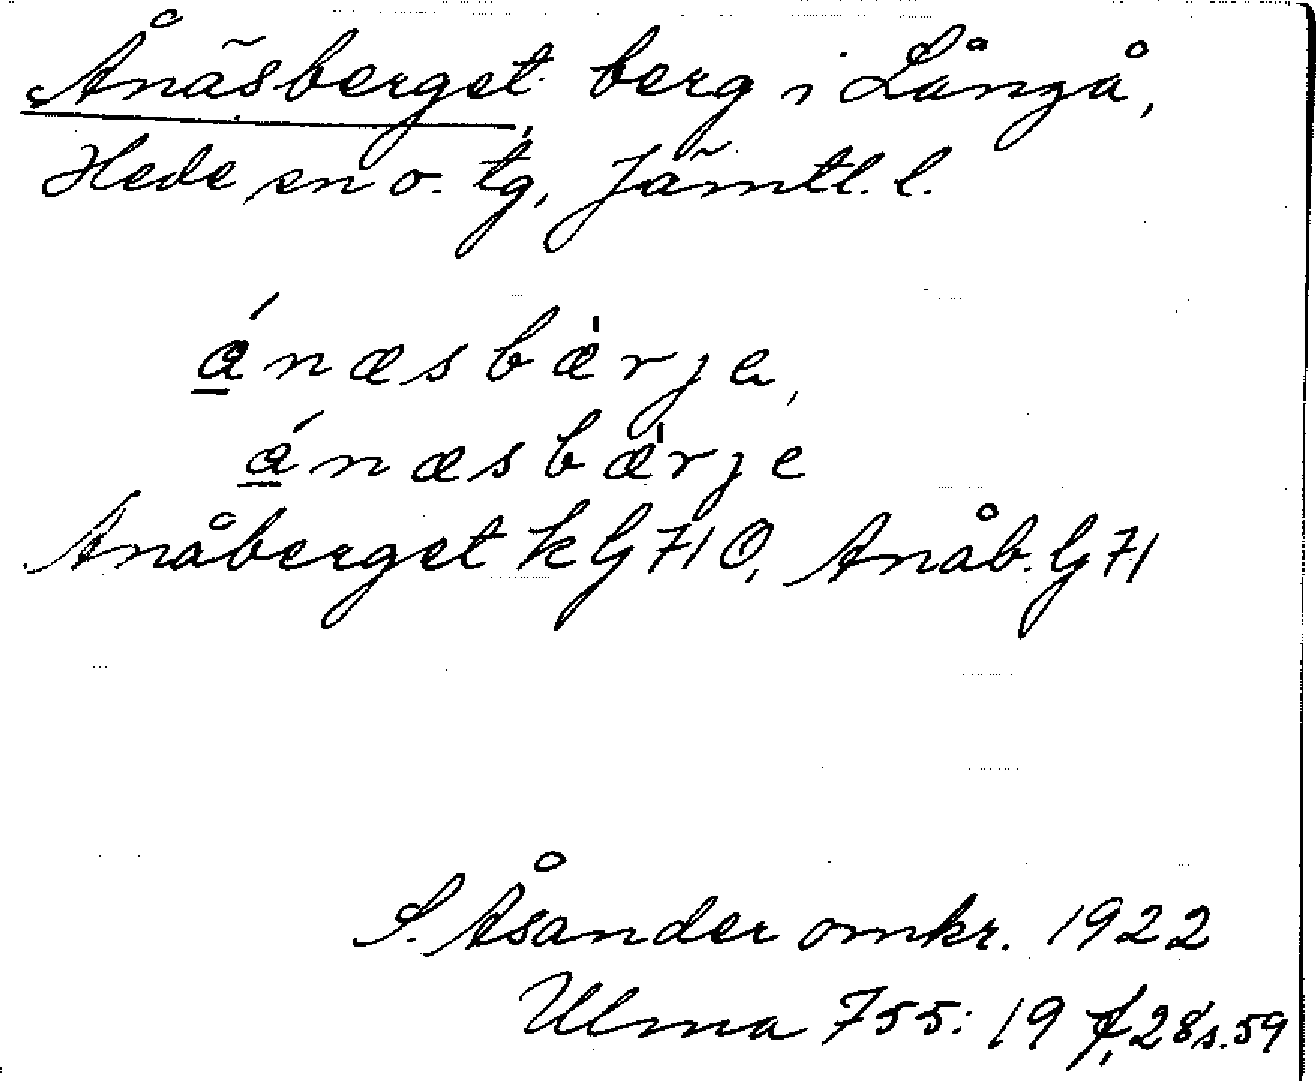 Ånäsberget, berg i Långå,
Hede sn o. tg, Jämtl. l.
ánæsbæ̀rje,
ánæsbæ̀rje
Anåberget k G 71 Ö, Anåb. G 71
S. Åsander omkr. 1922
Ulma 755: 19 f, 28 s. 59